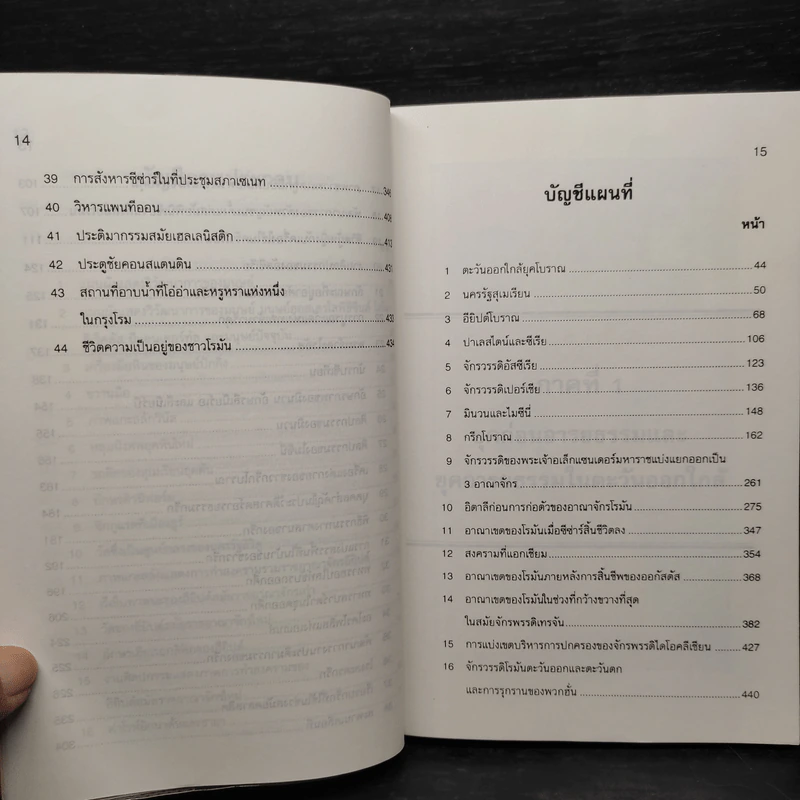 14
39 การสังหารซีซาร์ในที่ประชุมสภาเซเนท ........ 346
40 วิหารแพนทีออน ........ 406
41 ประติมากรรมสมัยเฮลเลนิสติก ........ 412
42 ประตูชัยคอนสแตนติน ........ 431
43 สถานที่อาบน้ำที่โอ่อ่าและหรูหราแห่งหนึ่ง
ในกรุงโรม ........ 433
44 ชีวิตความเป็นอยู่ของชาวโรมัน ........ 434
15
บัญชีแผนที่
หน้า
1 ตะวันออกใกล้ยุคโบราณ ........ 44
2 นครรัฐสุเมเรียน ........ 50
3 อียิปต์โบราณ ........ 68
4 ปาเลสไตน์และซีเรีย ........ 106
5 จักรวรรดิอัสซีเรีย ........ 123
6 จักรวรรดิเปอร์เชีย ........ 136
7 มินวนและไมซีนี่ ........ 148
8 กรีกโบราณ ........ 162
9 จักรวรรดิของพระเจ้าอเล็กแซนเดอร์มหาราชแบ่งแยกออกเป็น
3 อาณาจักร ........ 261
10 อิตาลีก่อนการก่อตัวของอาณาจักรโรมัน ........ 275
11 อาณาเขตของโรมันเมื่อซีซาร์สิ้นชีวิตลง ........ 347
12 สงครามที่แอกเชียม ........ 354
13 อาณาเขตของโรมันภายหลังการสิ้นชีพของออกัสตัส ........ 368
14 อาณาเขตของโรมันในช่วงที่กว้างขวางที่สุด
ในสมัยจักรพรรดิเทรจัน ........ 382
15 การแบ่งเขตบริหารการปกครองของจักรพรรดิไดโอคลีเชียน ........ 427
16 จักรวรรดิโรมันตะวันออกและตะวันตก
และการรุกรานของพวกฮั่น ........ 440